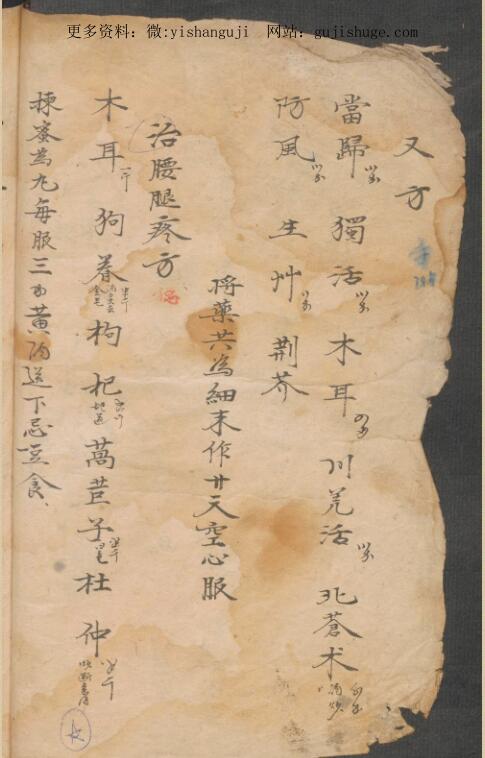 更多资料：微:yishanguji 网站：gujishuge.com
又方
當歸 獨活 木耳 川羌活 北蒼术 酒炒
防風 生艸 荆芥
將藥共為細末作廿天空心服
治腰腿疼方
木耳 一斤 狗脊 枸杞 萵苣子 杜仲
揀蜜為丸每服三錢黄酒送下忌豆食